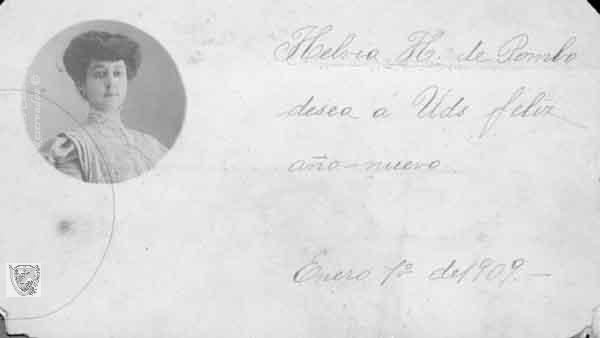 Helvia H. de Pombo
desea á Uds feliz
año nuevo
Enero 1º de 1909.—